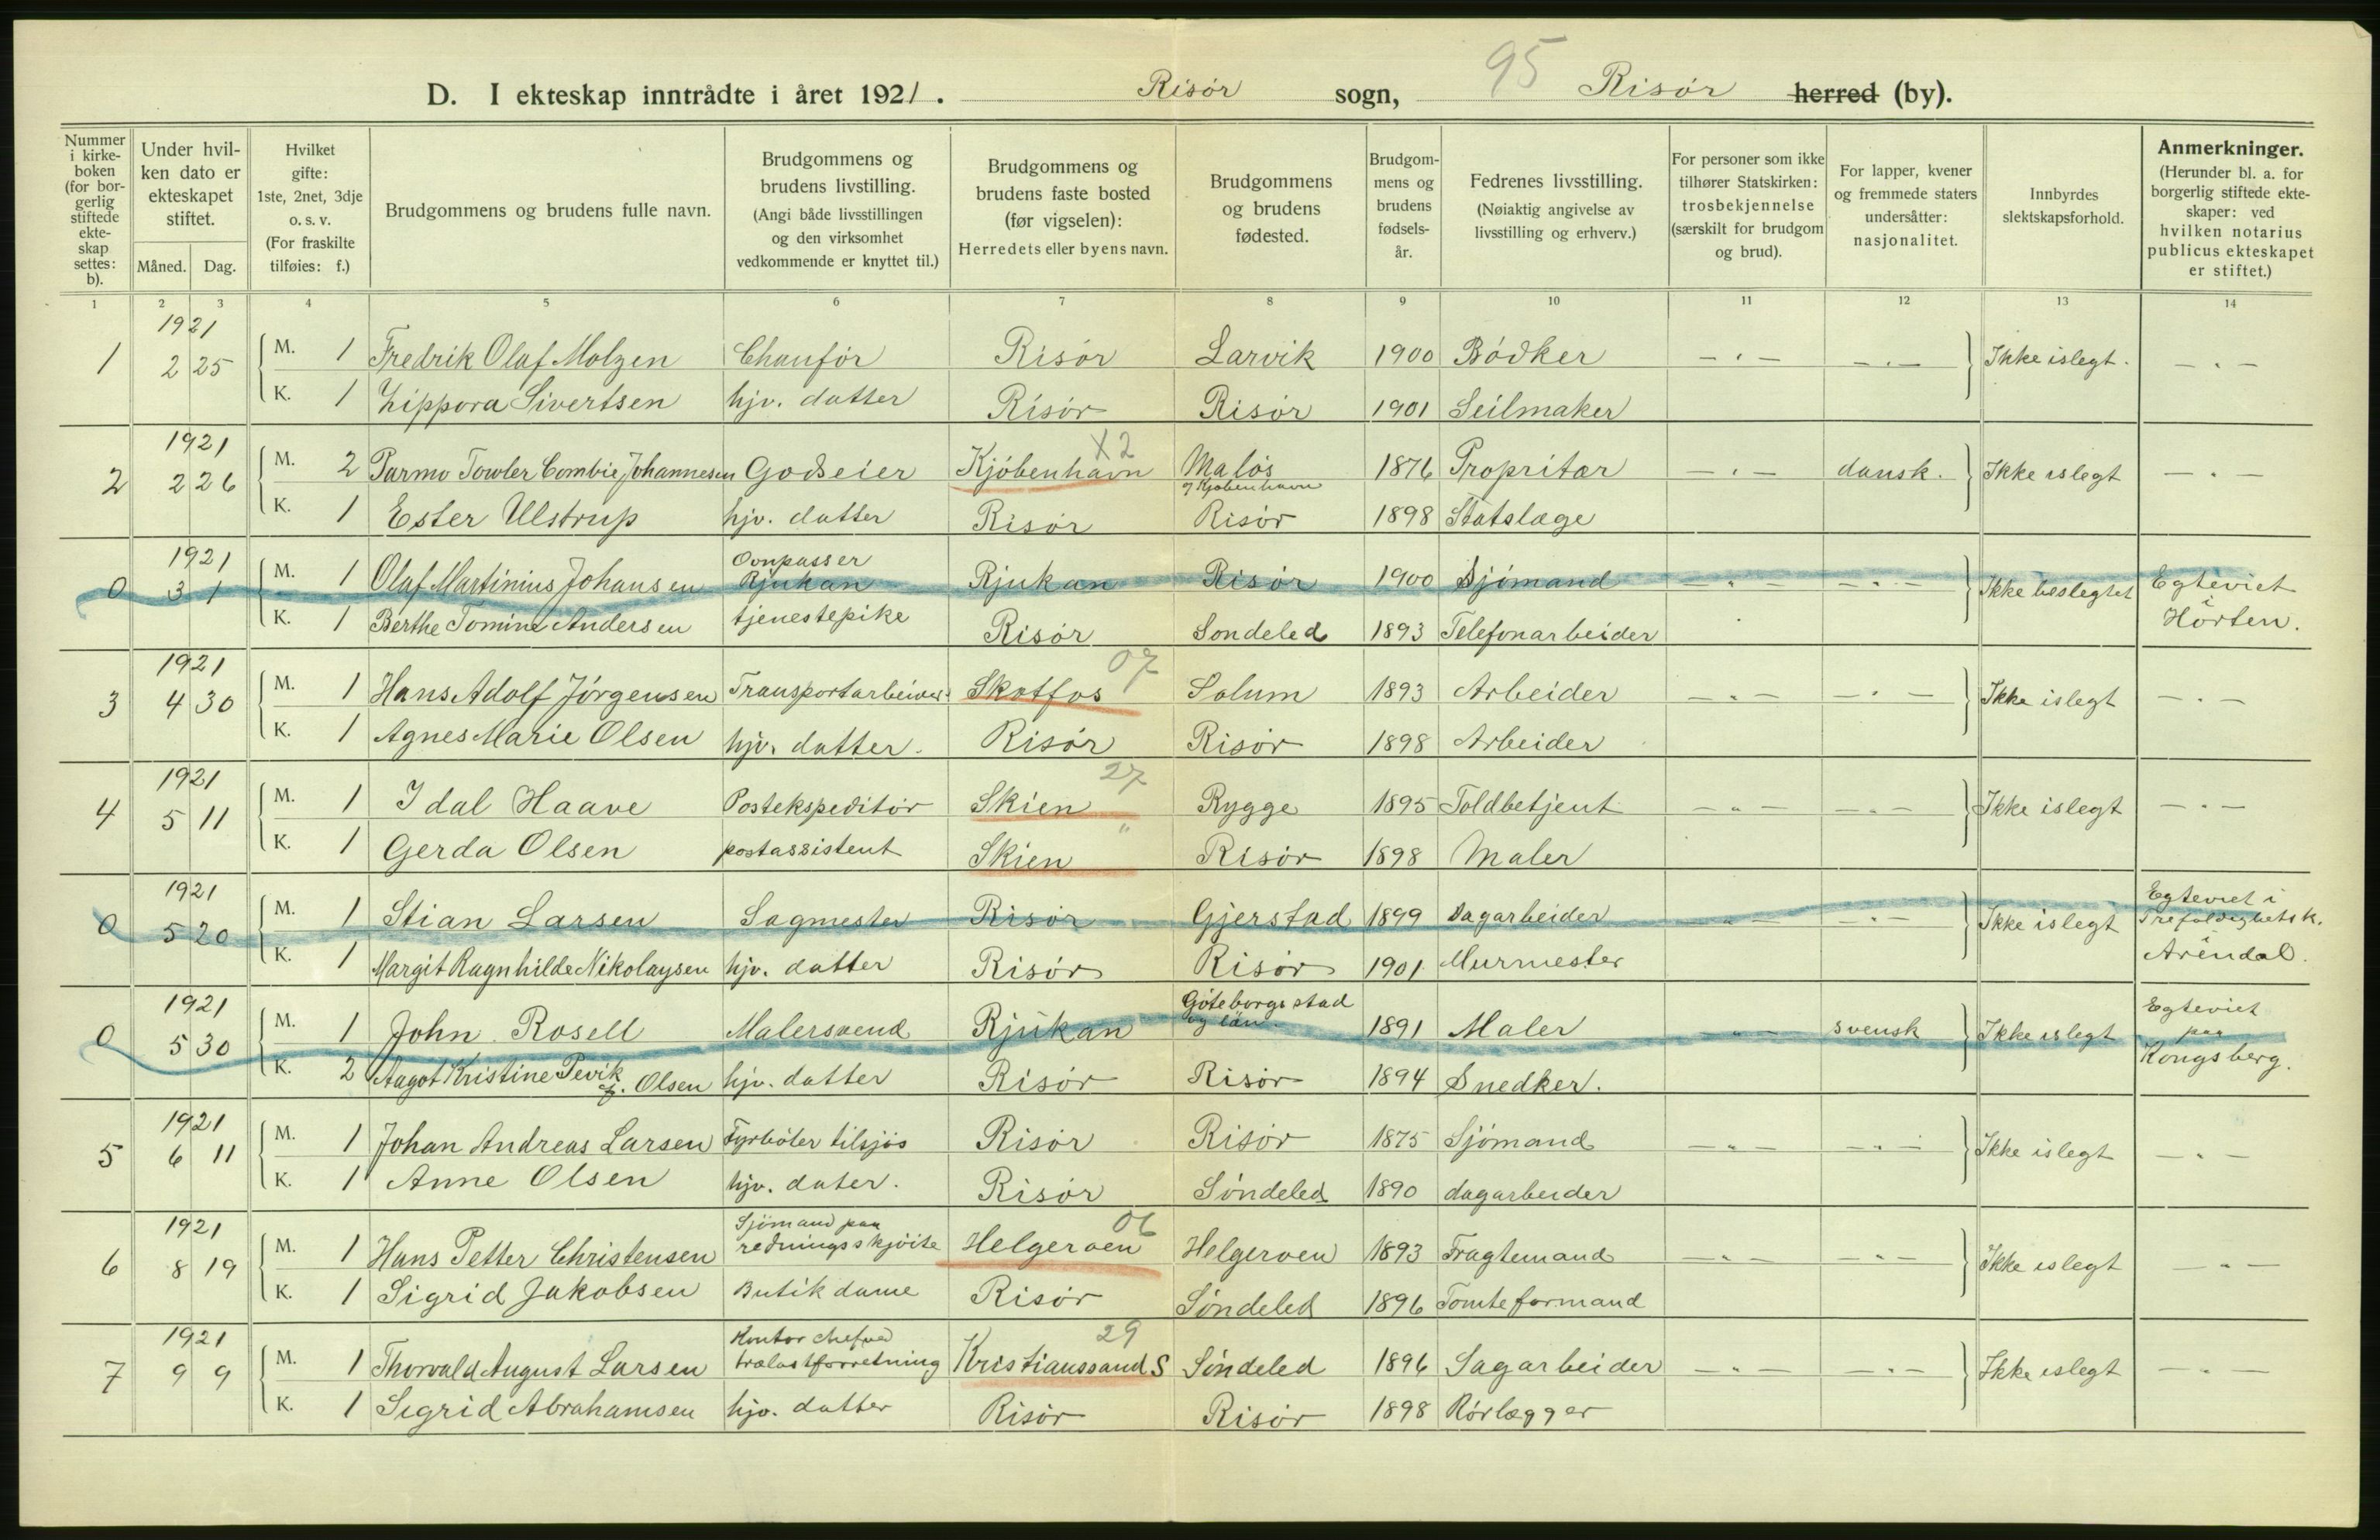 95
D. I ekteskap inntrådte i året 1921. Risør sogn, Risør herred (by).
Nummer i kirke-boken (for bor-gerlig stiftede ekte-skap settes: b).
Under hvil-ken dato er ekteskapet stiftet.
Måned. Dag.
Hvilket gifte: 1ste, 2net, 3dje o. s. v. (For fraskilte tilføies: f.)
Brudgommens og brudens fulle navn.
Brudgommens og brudens livstilling. (Angi både livsstillingen og den virksomhet vedkommende er knyttet til.)
Brudgommens og brudens faste bosted (før vigselen): Herredets eller byens navn.
Brudgommens og brudens fødested.
Brudgom-mens og brudens fødsels-år.
Fedrenes livsstilling. (Nøiaktig angivelse av livsstilling og erhverv.)
For personer som ikke tilhører Statskirken: trosbekjennelse (særskilt for brudgom og brud).
For lapper, kvener og fremmede staters undersåtter: nasjonalitet.
Innbyrdes slektskapsforhold.
Anmerkninger. (Herunder bl. a. for borgerlig stiftede ekte-skaper: ved hvilken notarius publicus ekteskapet er stiftet.)
1 2 3 4 5 6 7 8 9 10 11 12 13 14
1921
1 2 25 M. 1 Fredrik Olaf Molzen Chaufør Risør Larvik 1900 Bødker - " - - " - Ikke islegt. - " -
K. 1 Zippora Sivertsen hjv. datter Risør Risør 1901 Seilmaker
1921 X2
2 2 26 M. 2 Parmo Towler Combie Johannesen Godseier Kjøbenhavn Maløs 1876 Propritær - " - dansk. Ikke islegt - " -
/ Kjøbenhavn
K. 1 Ester Ulstrup hjv. datter Risør Risør 1898 Statslæge
1921 Ovnpasser
0 3 1 M. 1 Olaf Martinius Johansen Rjukan Rjukan Risør 1900 Sjømand - " - - " - Ikke beslegtet Egteviet
i
K. 1 Berthe Tomine Andersen tjenestepike Risør Sondeled 1893 Telefonarbeider Horten.
1921 07
3 4 30 M. 1 Hans Adolf Jørgensen Transportarbeider Skotfos Solum 1893 Arbeider - " - - " - Ikke islegt - " -
K. 1 Agnes Marie Olsen hjv. datter. Risør Risør 1898 Arbeider
1921 27
4 5 11 M. 1 Idal Haave Postekspeditør Skien Rygge 1895 Toldbetjent - " - - " - Ikke islegt - " -
K. 1 Gerda Olsen postassistent Skien " Risør 1898 Maler
1921 Egteviet i
0 5 20 M. 1 Stian Larsen Sagmester Risør Gjerstad 1899 Dagarbeider - " - - " - Ikke islegt Trefoldighetsk.
K. 1 Margit Ragnhilde Nikolaysen hjv. datter Risør Risør 1901 Murmester Arendal.
1921 Göteborgs stad Egteviet
0 5 30 M. 1 John Rosell Malersvend Rjukan og län. 1891 Maler - " - svensk Ikke islegt paa
K. 2 Aagot Kristine Pevik f. Olsen hjv. datter Risør Risør 1894 Snedker. Kongsberg.
1921
5 6 11 M. 1 Johan Andreas Larsen Fyrbøter tilsjøs Risør Risør 1875 Sjømand - " - - " - Ikke islegt - " -
K. 1 Anne Olsen hjv. dater. Risør Søndeled 1890 dagarbeider
1921 Sjømand paa 06
6 8 19 M. 1 Hans Petter Christensen redningsskjøite Helgeroen Helgeroen 1893 Fragtemand - " - - " - Ikke islegt - " -
K. 1 Sigrid Jakobsen Butikdame Risør Søndeled 1896 Tomteformand
1921 Kontorchef ved 29
7 9 9 M. 1 Thorvald August Larsen trælastforretning Kristianssand S Søndeled 1896 Sagarbeider - " - - " - Ikke islegt - " -
K. 1 Sigrid Abrahamsen hjv. datter Risør Risør 1898 Rørlægger